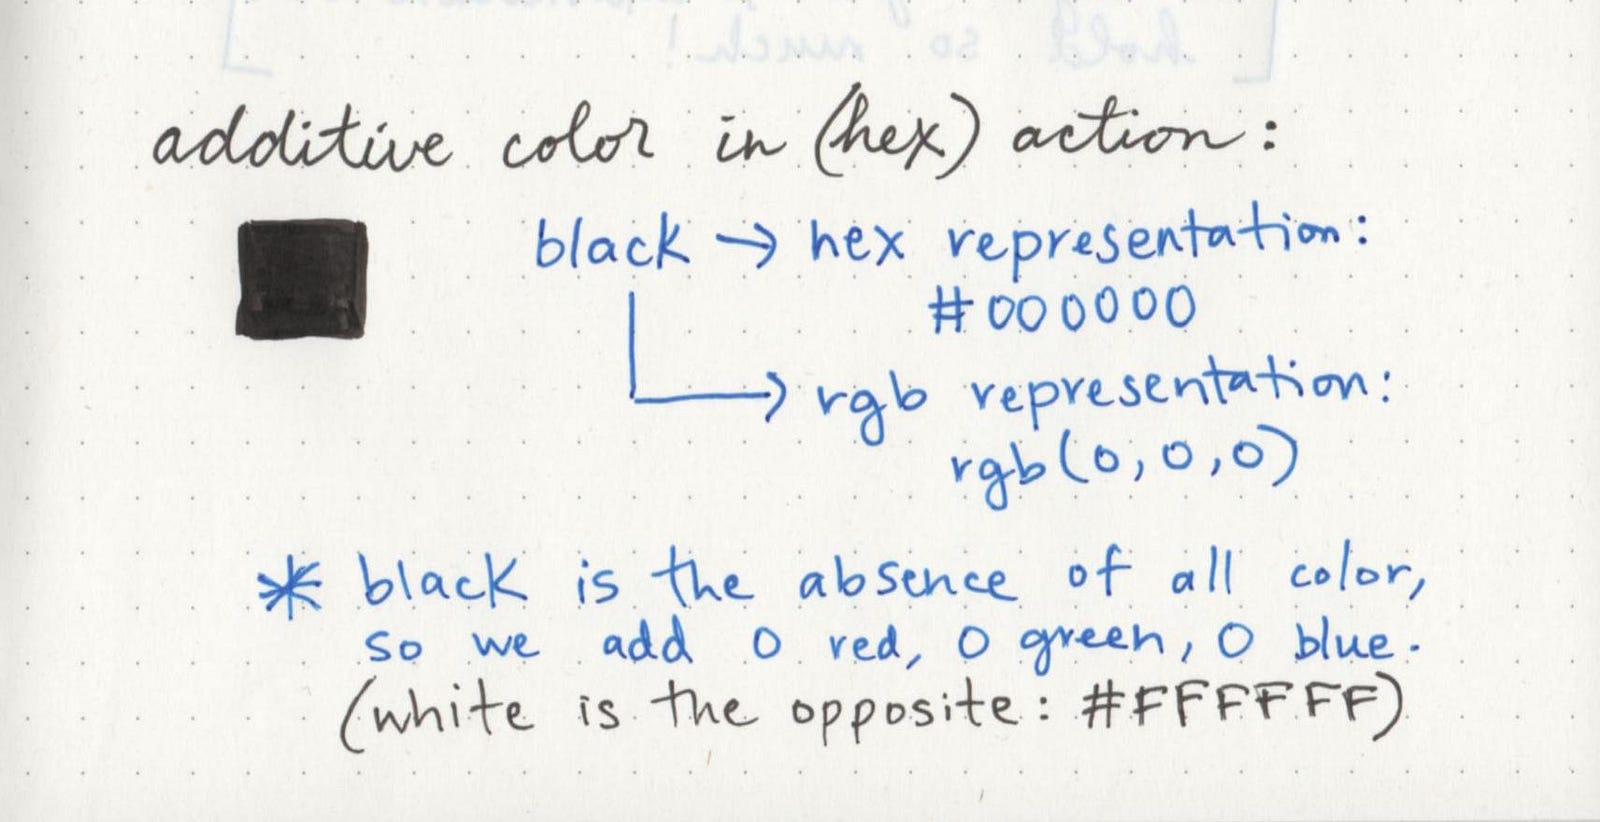 additive color in (hex) action:
black → hex representation:
#000000
→ rgb representation:
rgb(0,0,0)
* black is the absence of all color,
so we add 0 red, 0 green, 0 blue.
(white is the opposite: #FFFFFF)